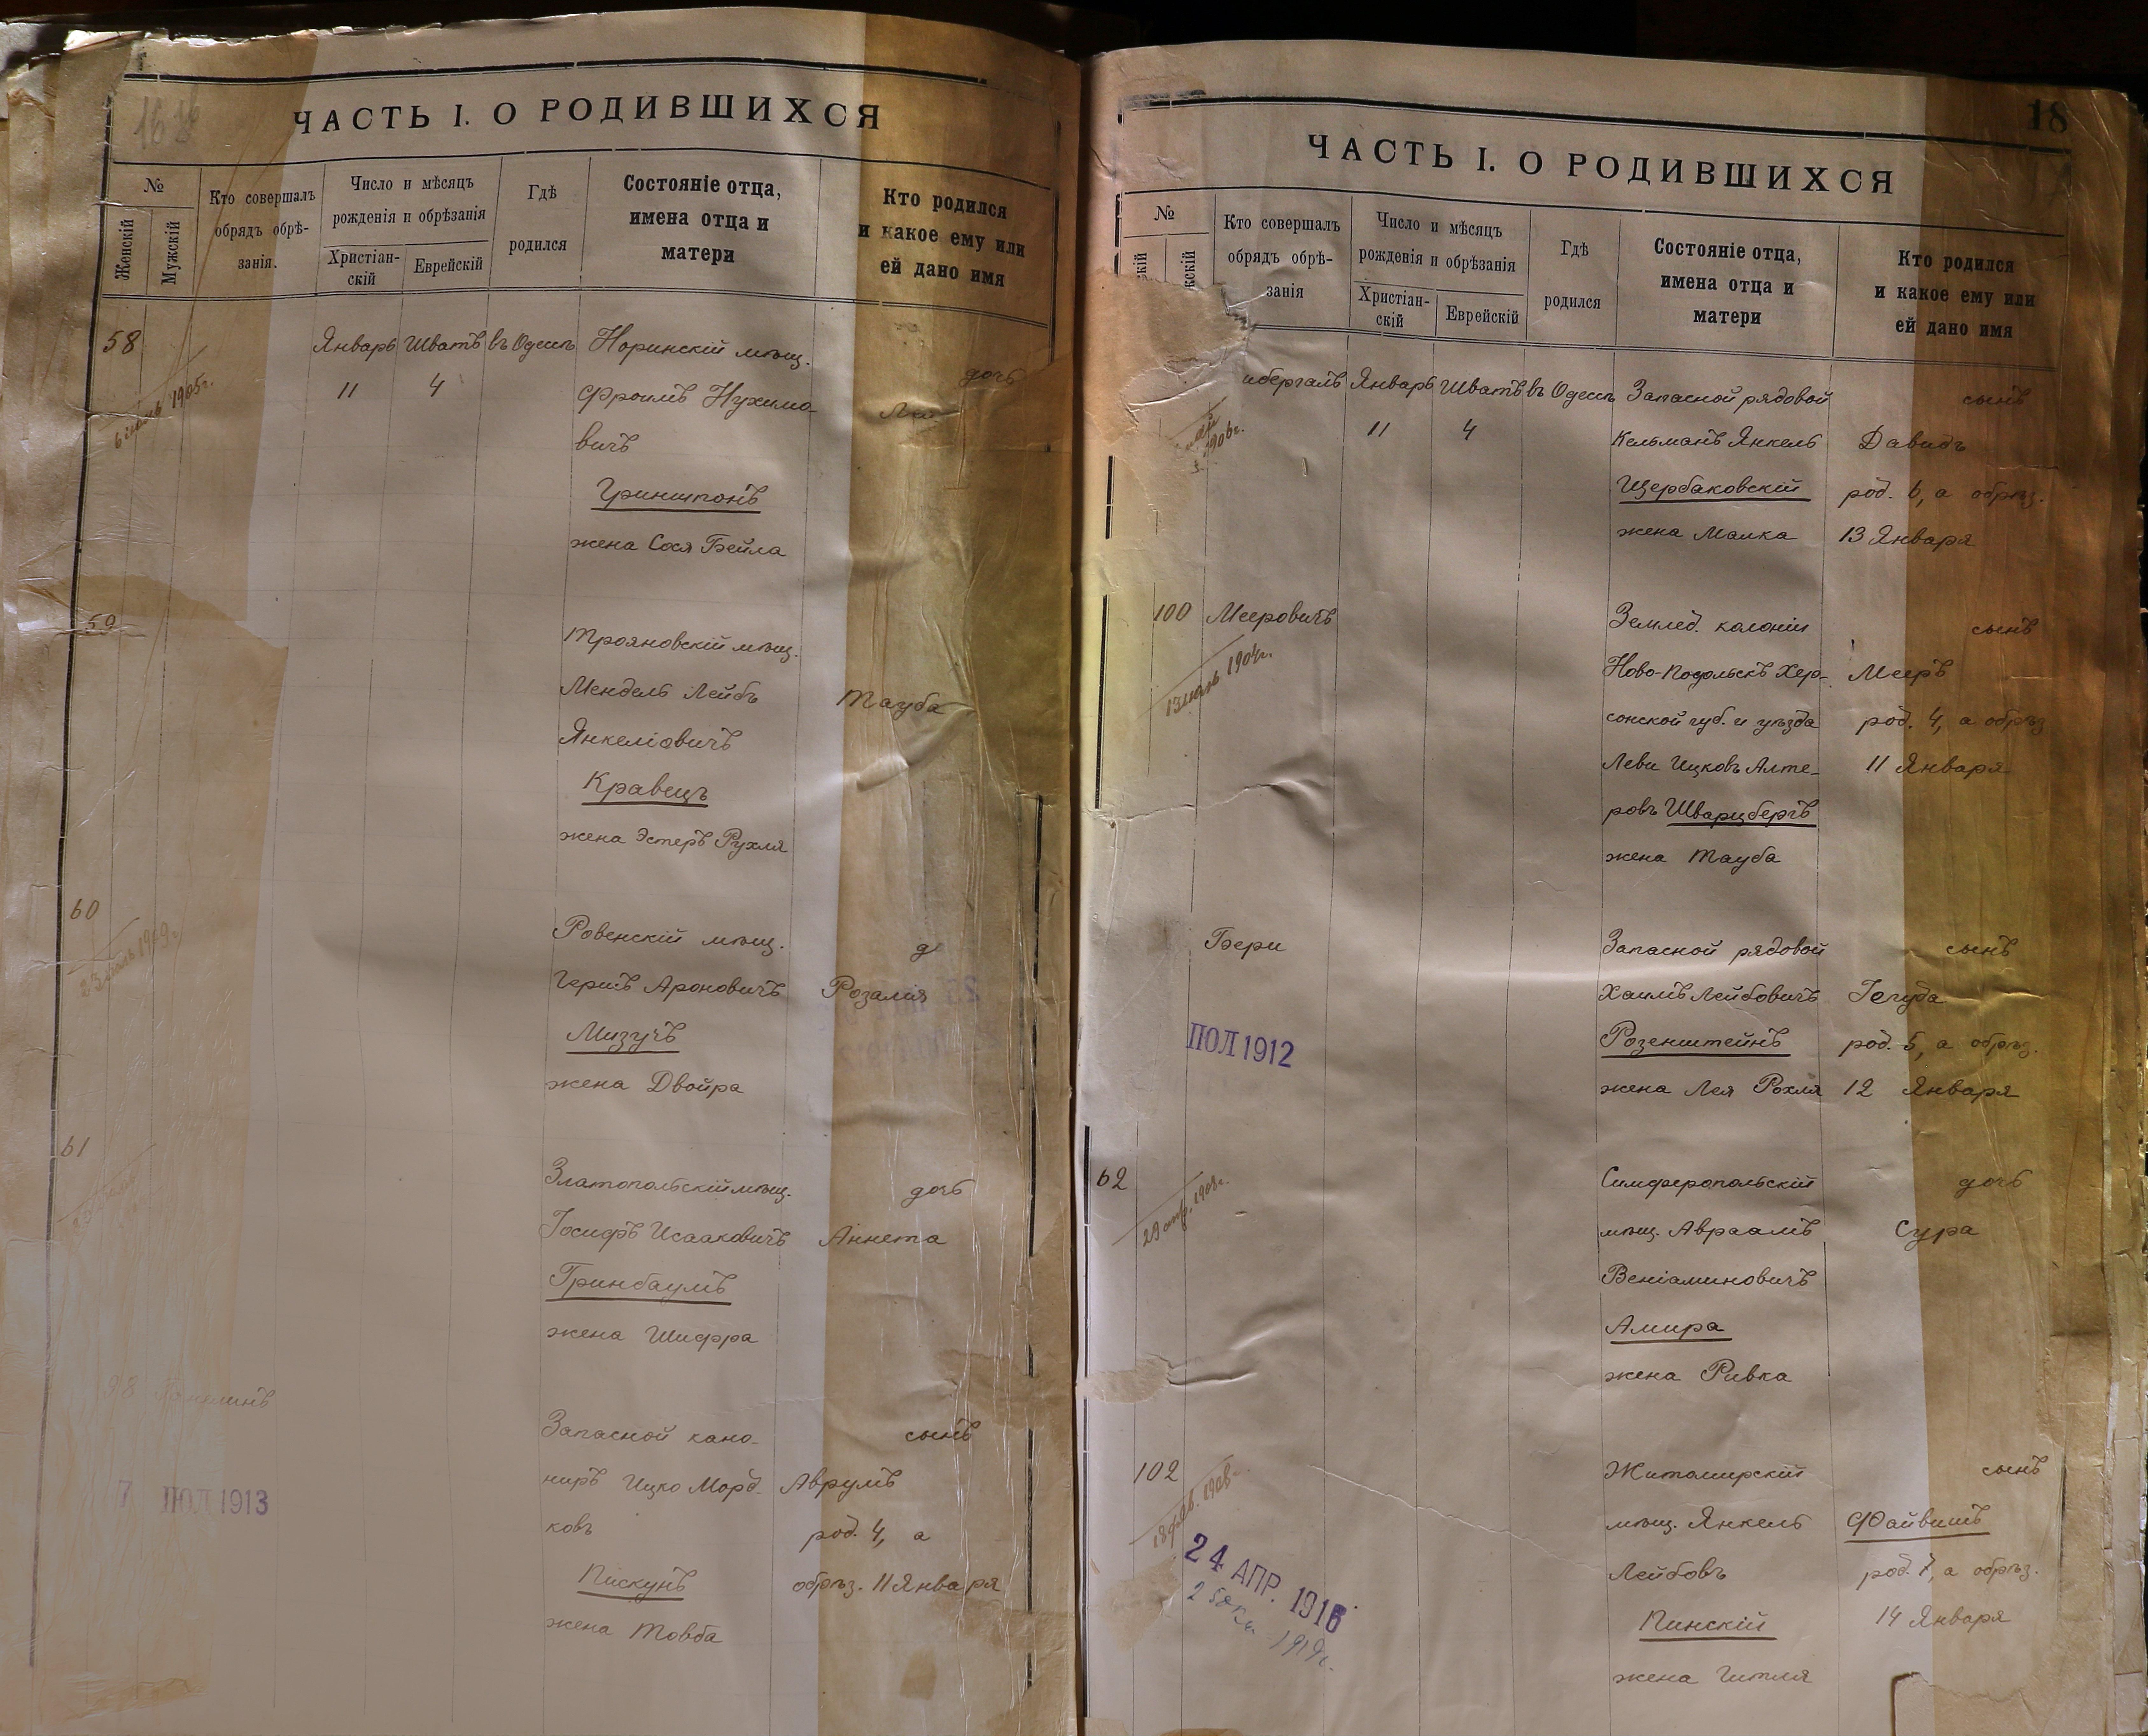 16
ЧАСТЬ I. О РОДИВШИХСЯ
№
Женскій
Мужскій
Кто совершалъ
обрядъ обрѣ-
занія.
Число и мѣсяцъ
рожденія и обрѣзанія
Христіан-
скій
Еврейскій
Гдѣ
родился
Состояніе отца,
имена отца и
матери
Кто родился
и какое ему или
ей дано имя
58 Январь Шватъ въ Одессѣ Норинскій мѣщ.
дочь
11 4 Фроимъ Нухимо-
вичъ
6 1905г.
Гриншпонъ
жена Сося Бейла
59
Трояновскій мѣщ.
Мендель Лейбъ Тауба
Янкеліовичъ
Кравецъ
жена Эстеръ Рухля
60
Ровенскій мѣщ. д
Гершъ Ароновичъ Розалия
Мизучъ
жена Двойра
61
Златопольскій мѣщ. дочь
Іосифъ Исааковичъ Аннета
Гринбаумъ
жена Шифра
98
Запасной кано- сынъ
ниръ Ицко Морд- Аврумъ
ковъ род. 4, а
7 ПОЛ 1913
Пискунъ обрѣз. 11 Января
жена Товба
18
ЧАСТЬ I. О РОДИВШИХСЯ
№
скій
жскій
Кто совершалъ
обрядъ обрѣ-
занія
Число и мѣсяцъ
рожденія и обрѣзанія
Христіан-
скій
Еврейскій
Гдѣ
родился
Состояніе отца,
имена отца и
матери
Кто родился
и какое ему или
ей дано имя
Январь Шватъ въ Одессѣ Запасной рядовой сынъ
11 4 Кельманъ Янкель Давидъ
1906г.
Щербаковскій род. 6, а обрѣз.
жена Малка 13 Января
100 Мееровичъ Землед. колоніи сынъ
Ново-Подольскъ Хер- Мееръ
1904г.
сонской губ. и уѣзда род. 4, а обрѣз
Леви Ицковъ Алте- 11 Января
ровъ Шварцбергъ
жена Тауба
Бери Запасной рядовой сынъ
Хаимъ Лейбовичъ Іегуда
ПОЛ 1912
Розенштейнъ род. 5, а обрѣз.
жена Лея Рохля 12 Января
62 Симферопольскій дочь
29 апр. 1908г.
мѣщ. Авраамъ Сура
Веніаминовичъ
Амира
жена Ривка
102 Житомирскій сынъ
мѣщ. Янкель Файвишъ
18 1908
Лейбовъ род. 7, а обрѣз.
24 АПР. 1916
Пинскій 14 Января
1919г.
жена Гитля